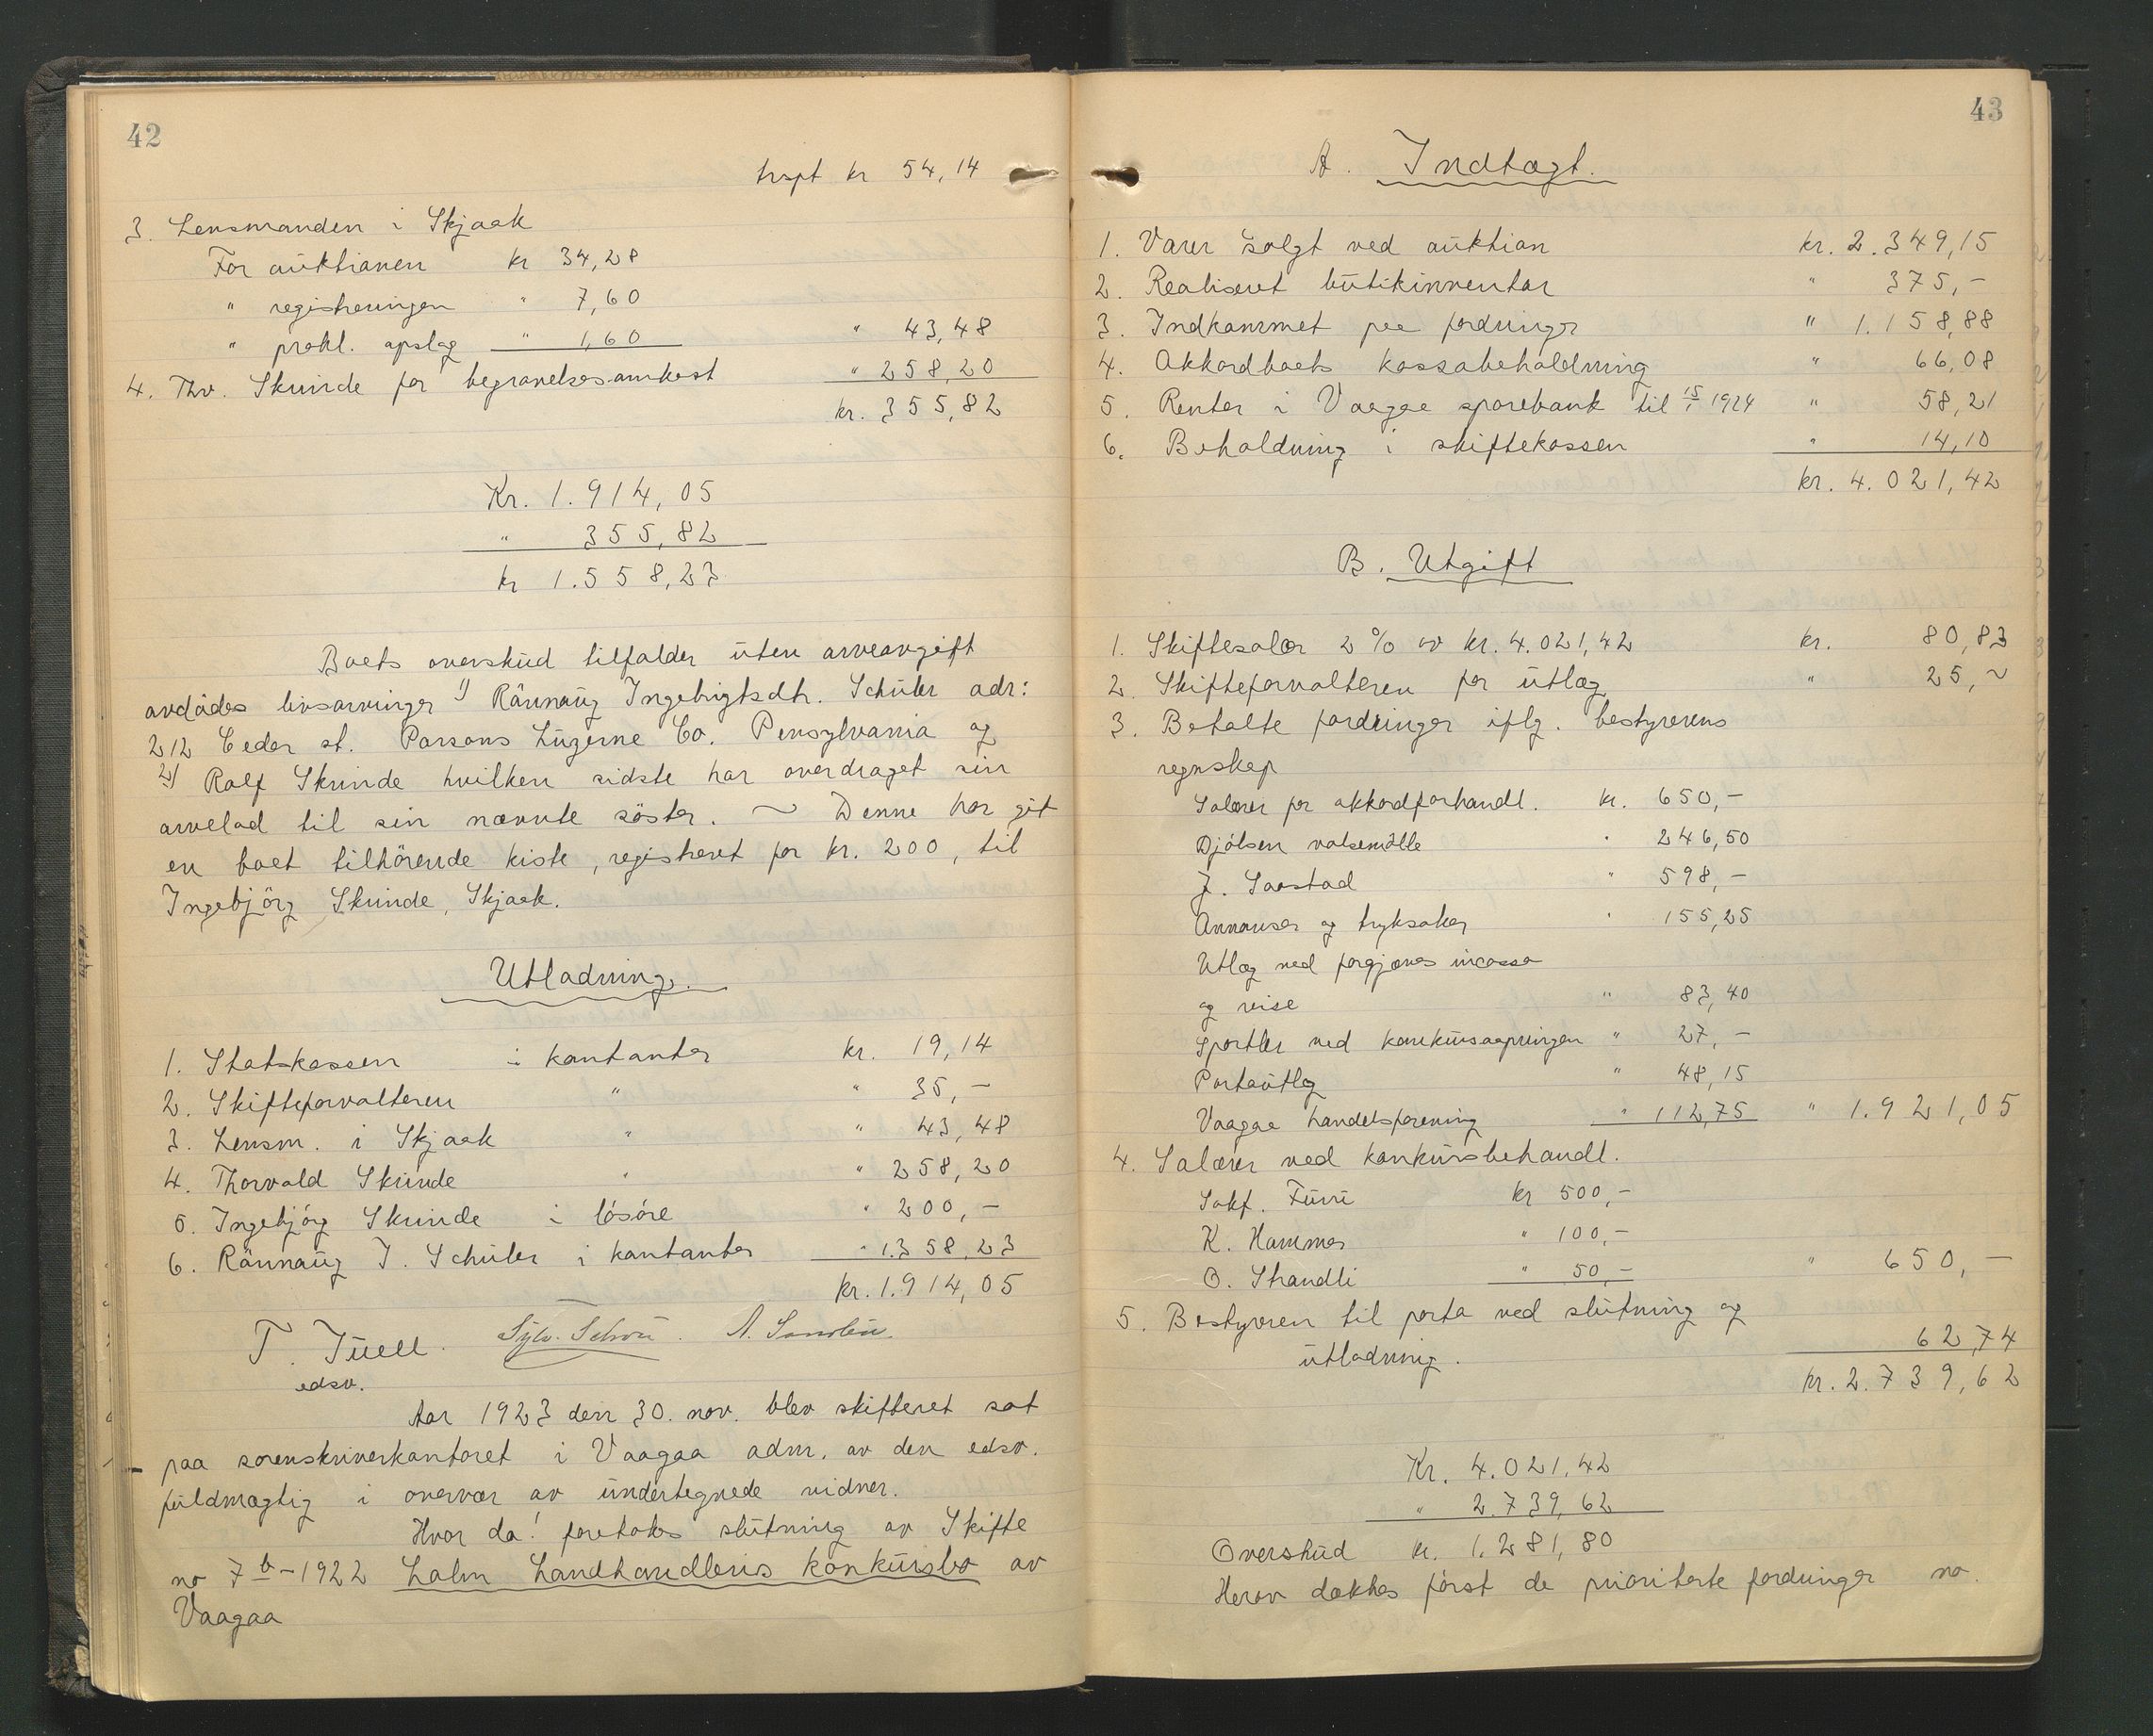 42
trspt kr 54,14
3. Lensmanden i Skjaak
For auktionen kr 34,28
" registreringen " 7,60
" prokl. opslag " 1,60 " 43,48
4. Thv. Skunde for begravelsesomkost " 258,20
kr. 355,82
Kr. 1.914,05
" 355,82
kr 1.558,23
Boets overskud tilfalder uten arveavgift
avdødes livsarvinger 1) Rönnaug Ingebrigtsdtr. Schuler adr:
212 Ceder st. Parsons Luzerne Co. Pensylvania og
2) Rolf Skunde hvilken sidste har overdraget sin
arvelod til sin nævnte söster. ~ Denne har git
en boet tilhörende kiste, registreret for kr. 200, til
Ingebjörg Skunde, Skjaak.
Utlodning.
1. Statskassen i kontanter kr. 19,14
2. Skifteforvalteren " " 35,-
3. Lensm. i Skjaak " " 43,48
4. Thorvald Skunde " " 258,20
5. Ingebjörg Skunde i lösöre " 200,-
6. Rönnaug I. Schuler i kontanter " 1.358,23
kr. 1.914,05
T. Juell.
edsv.
Aar 1923 den 30. nov. blev skifteret sat
paa sorenskriverkontoret i Vaagaa adm. av den edsv.
fuldmægtig i overvær av undertegnede vidner.
Hvor da! foretokes slutning av Skifte
no 7 b - 1922 Lalm Landhandleris konkursbo av
Vaagaa
43
A. Indtægt.
1. Varer solgt ved auktion kr. 2.349,15
2. Realiseret butikinventar " 375,-
3. Indkommet paa fordringer " 1.158,88
4. Akkordboets kassabeholdning " 66,08
5. Renter i Vaagaa sparebank til 15/1 1924 " 58,21
6. Beholdning i skiftekassen " 14,10
kr. 4.021,42
B. Utgift
1. Skiftesalær 2 % av kr. 4.021,42 kr. 80,83
2. Skifteforvalteren for utlæg " 25,~
3. Betalte fordringer iflg. bestyrerens
regnskap
Salærer for akkordforhandl. kr. 650,-
Djölsen valsemölle " 246,50
J. Saastad " 598,-
Annonser og tryksaker " 155,25
Utlæg ved forgjæves incasso
og reise " 83,40
Sportler ved konkursaapningen " 27,-
Portoutlæg " 48,15
Vaagaa handelsforening " 112,75 " 1.921,05
4. Salærer ved konkursbehandl.
Sakf. Furu kr 500,-
K. Hammer " 100,-
O. Strandli " 50,- " 650,-
5. Bestyreren til porto ved slutning og
utlodning. 62,74
kr. 2.739,62
Kr. 4.021,42
" 2.739,62
Overskud kr. 1.281,80
Herav dækkes först de prioriterte fordringer no.